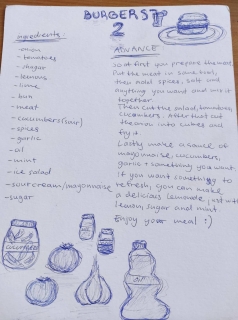 BURGERS
2
Ingredients:
-onion
-tomatoes
-lemons
-lime
-bun
-meat
-cucumbers(sour)
-spices
-garlic
-oil
-mint
-ice salad
-sour cream/mayonnaise
-sugar
ADVANCE
So at first you prepare the meat.
Put the meat in some
then add spices, salt and
anything you want and mix it
together.
Then cut the salad, tomatoes,
cucumbers. After that cut
the onion into cubes and
fry it.
Lastly make a sauce of
mayonnaise, cucumbers,
garlic + something you want.
If you want something to
refresh, you can make
a delicious lemonade, just with
lemon, sugar and mint.
Enjoy your meal :)
cucumbers
oil